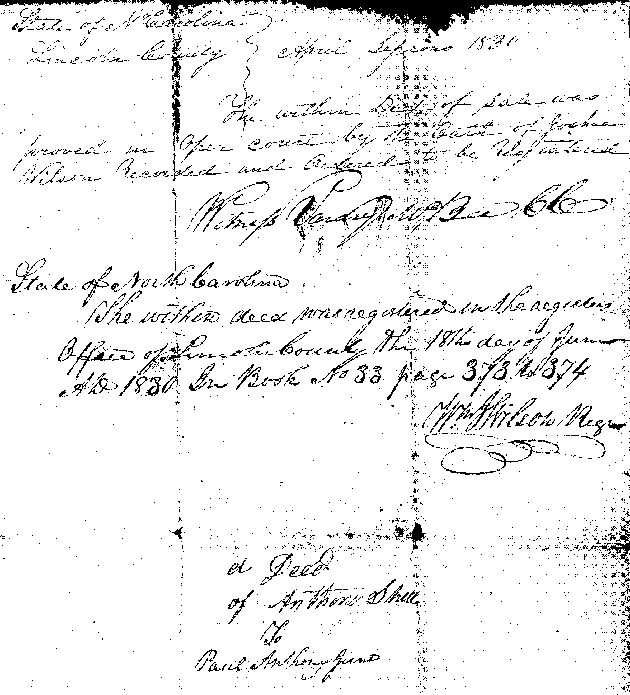 State of N Carolina
Lincoln County } April Sessions 1830
The within Deed of sale was
proved in Open court by the Oath of Joshua
Wilson Recorded and Ordered to be Registered
Witness Vardry McBee CC
State of North Carolina
The within deed was registered in the registers
Office of Lincoln County the 18th day of June
AD 1830 In Book No 33 page 373 & 374
Wm J Wilson Regr
A Deed
of Anthony Shell
To
Paul Anthony Junr